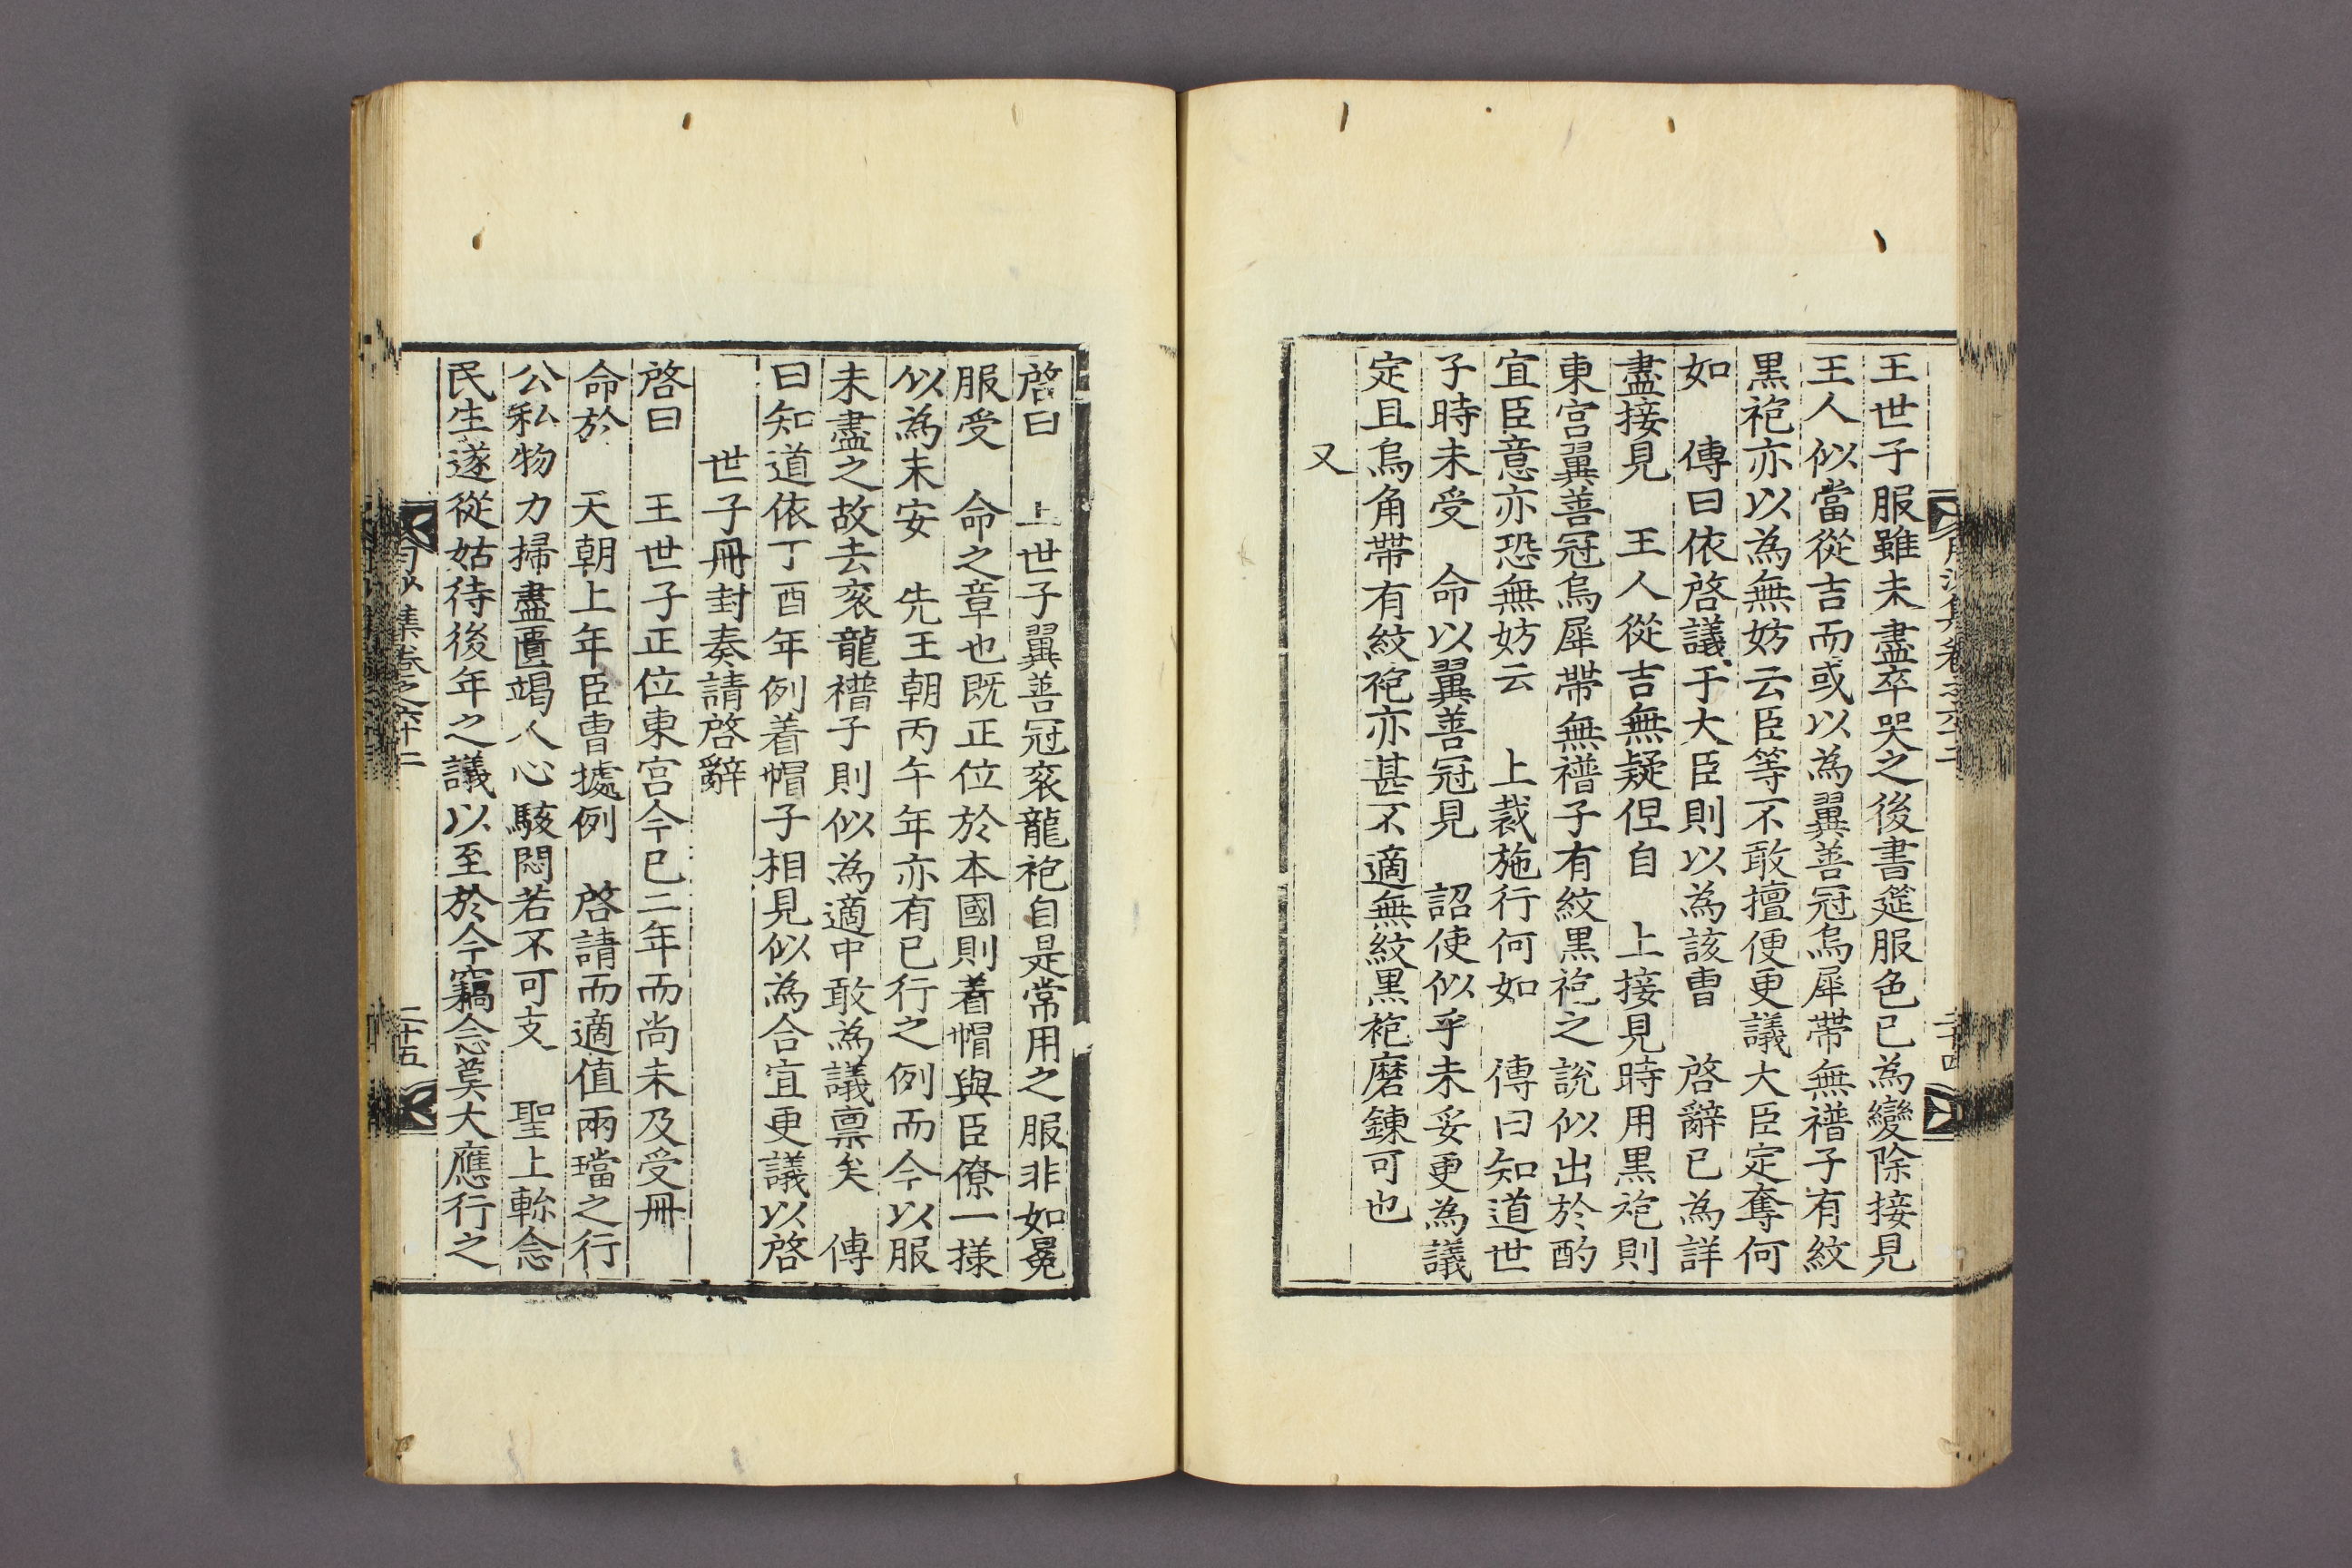 王世子服雖未盡卒哭之後書筵服色已為變除接見
王人似當從吉而或以為翼善冠烏犀帶無襜子有紋
黑袍亦以為無妨云臣等不敢擅便更議大臣定奪何
如 傳曰依啓議于大臣則以為該曹 啓辭已為詳
盡接見 王人從吉無疑但自 上接見時用黑袍則
東宮翼善冠烏犀帶無襜子有紋黑袍之說似出於酌
宜臣意亦恐無妨云 上裁施行何如 傳曰知道世
子時未受 命以翼善冠見 詔使似乎未妥更為議
定且烏角帶有紋袍亦甚不適無紋黑袍磨鍊可也
又
啓曰 上世子翼善冠衮龍袍自是常用之服非如冕
服受 命之章也既正位於本國則着帽與臣僚一樣
似為未安 先王朝丙午年亦有已行之例而今以服
未盡之故去衮龍襜子則似為適中敢為議稟矣 傳
曰知道依丁酉年例着帽子相見似為合宜更議以啓
世子冊封奏請啓辭
啓曰 王世子正位東宮今已二年而尚未及受冊
命於 天朝上年臣曹據例 啓請而適值兩璫之行
公私物力掃盡匱竭人心駭悶若不可支 聖上軫念
民生遂從姑待後年之議以至於今竊念莫大應行之
集卷之六十二
二十五